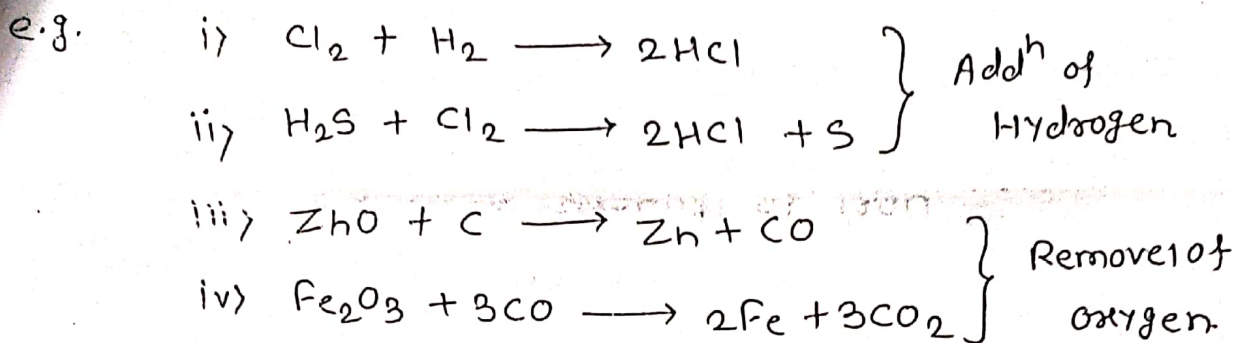 e.g. i) Cl₂ + H₂ ⟶ 2HCl
ii) H₂S + Cl₂ ⟶ 2HCl + S
} Addⁿ of
Hydrogen
iii) ZnO + C ⟶ Zn + CO
iv) Fe₂O₃ + 3CO ⟶ 2Fe + 3CO₂
} Removel of
oxygen